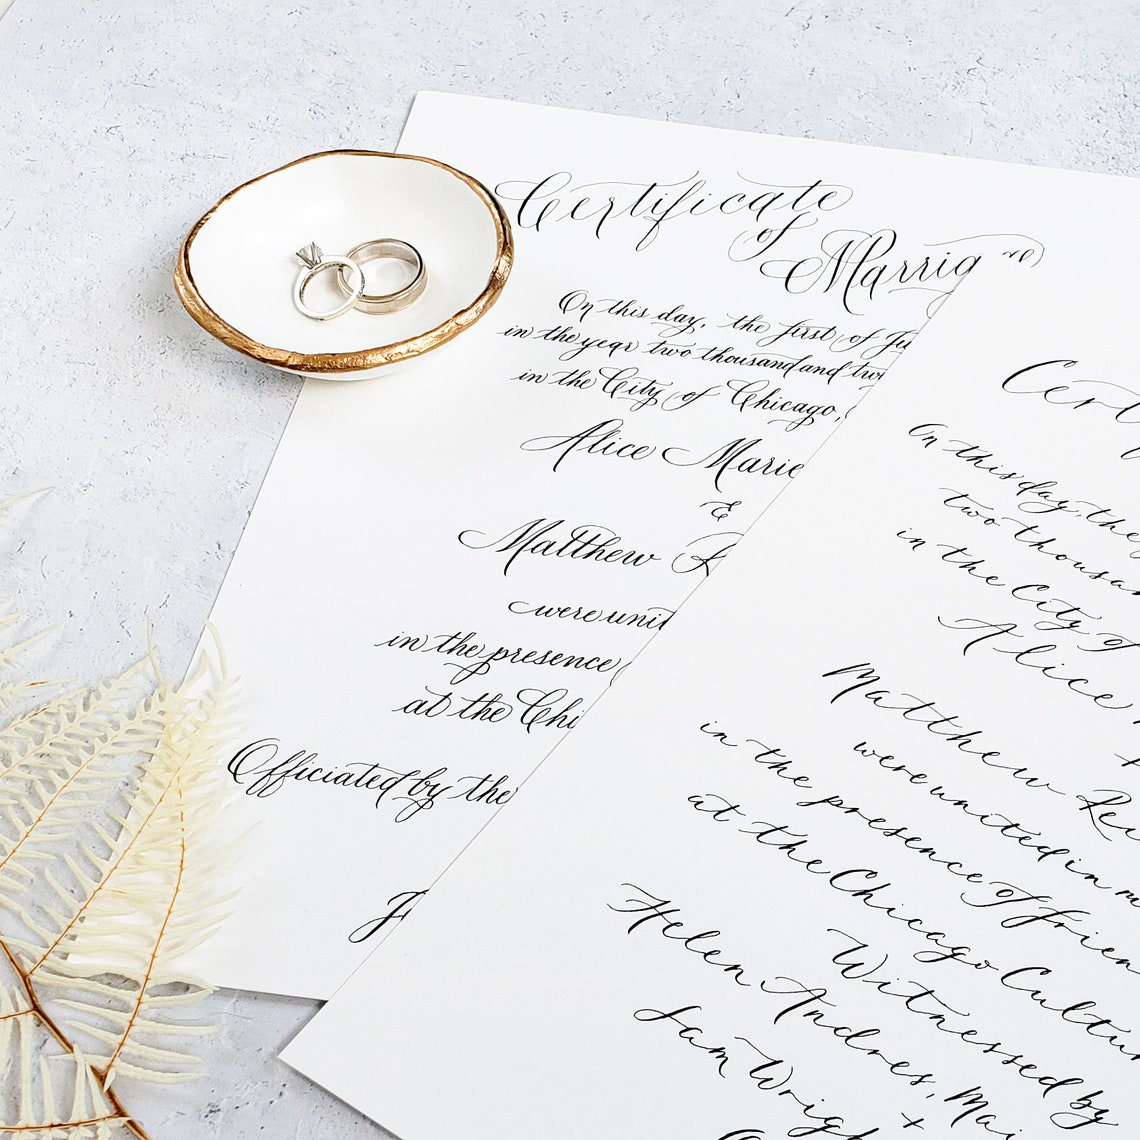 Certificate
of
Marriag
On this day, the first of Ju
in the year two thousand and twe
in the City of Chicago,
Alice Marie
&
Matthew R
were unit
in the presence
at the Chi
Officiated by the
J
Certif
On this day, the
two thousan
in the City of
Alice
Matthew Rei
were united in m
in the presence of frien
at the Chicago Cultur
Witnessed by
Helen Andres, Mai
+
Sam Wrigh